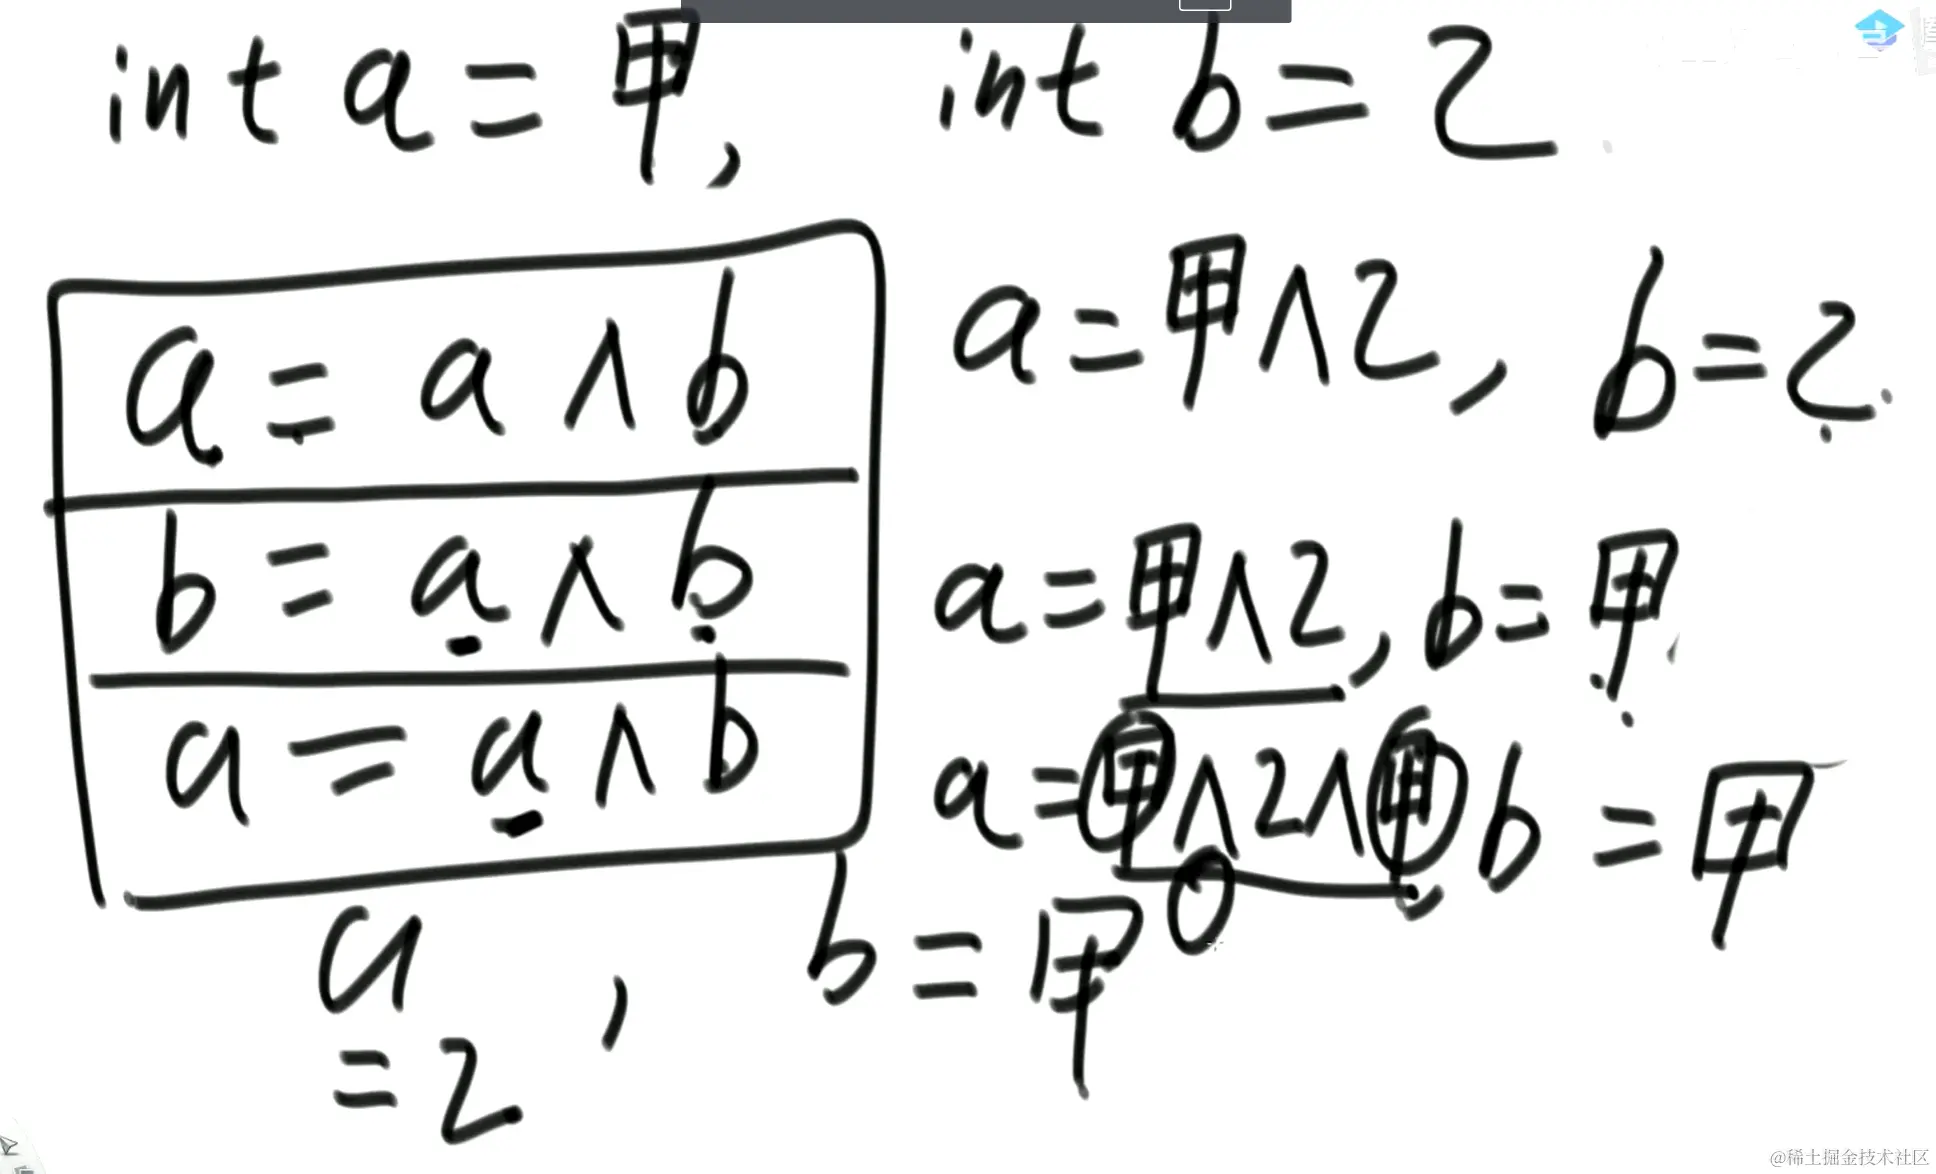 int a = 甲, int b = 乙
a = a ^ b a = 甲 ^ 乙, b = 乙.
b = a ^ b a = 甲 ^ 乙, b = 甲.
a = a ^ b a = 甲 ^ 乙 ^ 甲, b = 甲
0
a = 乙, b = 甲
@稀土掘金技术社区